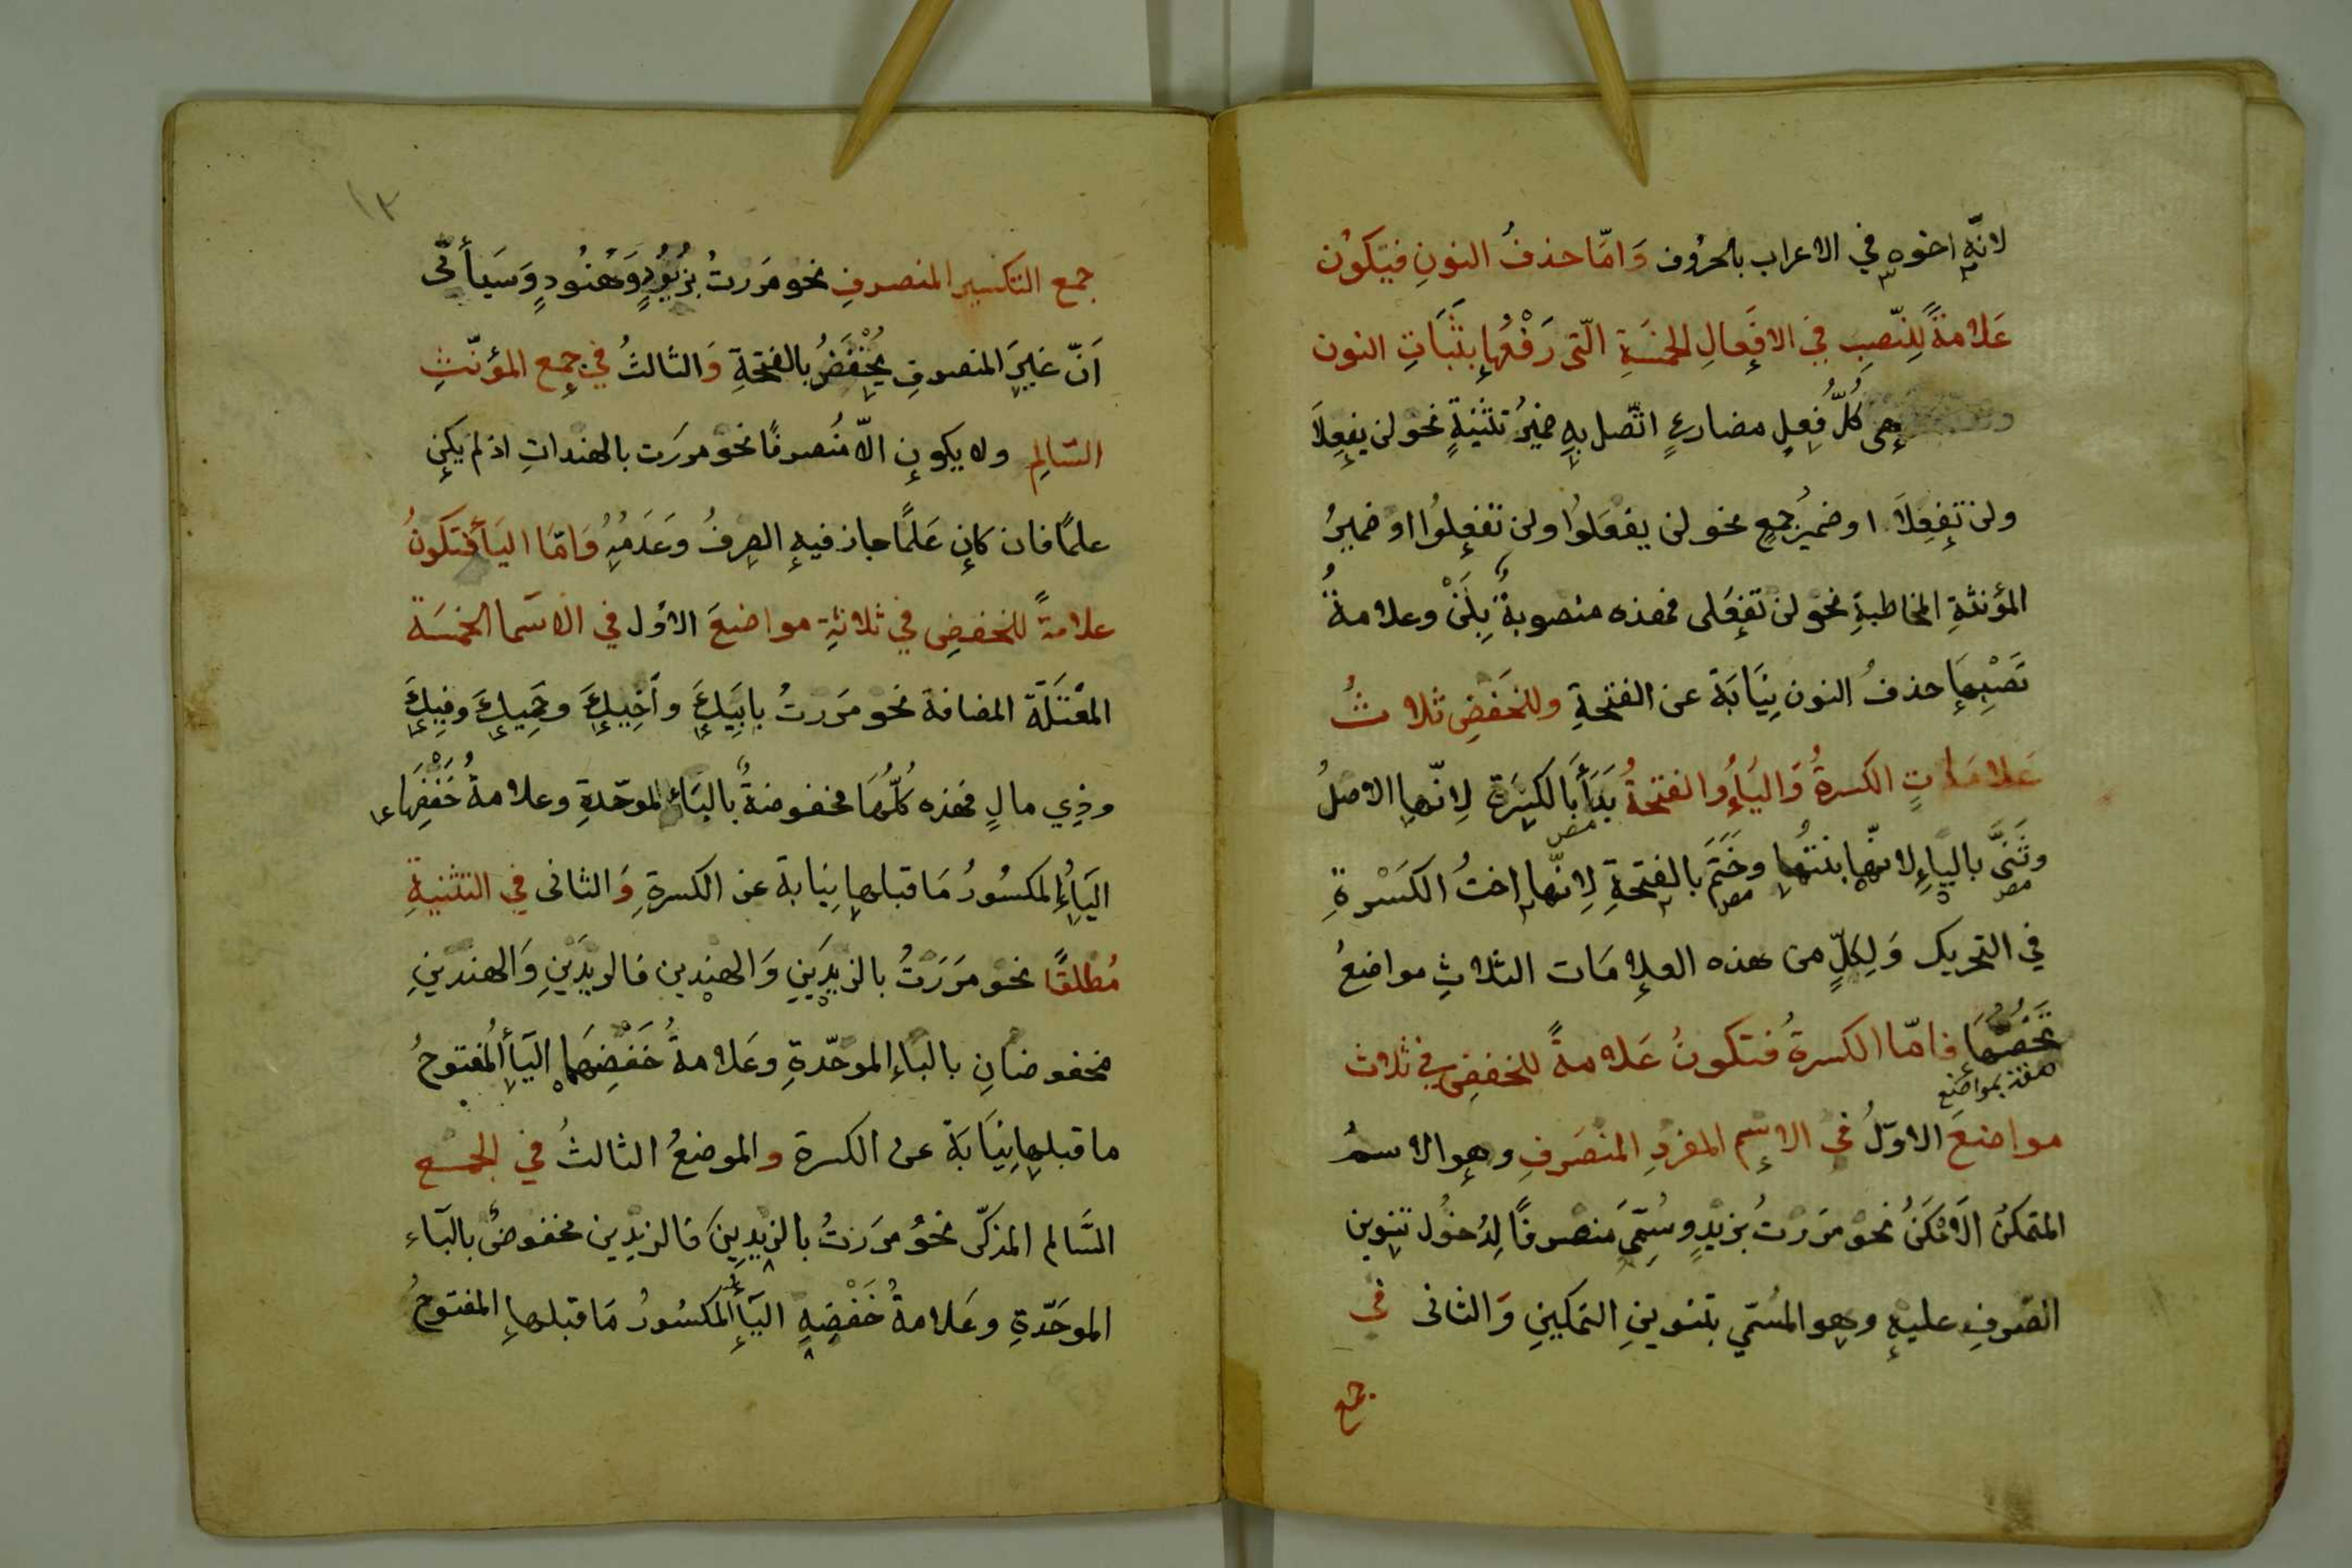 لانّه اخوه في الاعراب بالحُرُوف وَامّا حذفُ النونِ فيَكوُن
عَلامةً لِلنّصبِ في الافعالِ الخمسَةِ الّتى رَفْعُها بثَبَاتِ النون
وهى كُلُّ فِعلٍ مضارعٍ اتّصل بهِ ضميرُ تثنيَةٍ نحو لن يفعلَا
ولن تَفعِلَا اوضميرُ جمعٍ نحو لن يفعَلوُا ولن تفعلوُا اوضميرُ
المؤنثةِ المخاطبةِ نحو لن تفعَلى فهذه منصوبةٌ بِلَنْ وعلامةُ
نَصْبِهَا حذفُ النون نِيَابَة عن الفتحةِ وللخَفضِ ثلاثُ
عَلامَاتٍ الكسرةُ وَاليَاءُ والفتحةُ بَدَأَ بَالكسَرَة لِانّها الاصلُ
وثَنَّى بالياءِ لانّها بنتُها وخَتَمَ بالفتحةِ لِانّها اختُ الكَسْرةِ
في التحريك وَلِكلٍّ من هذه العلامَات الثلاثِ مواضعُ
تَخُصُّهَا فامّا الكسرةُ فتكونُ عَلامةً للخفضِ في ثلاث
مواضعَ الاوّلُ في الإسم المفردِ المنصَرفِ وهو الاسمُ
المتمكنُ الَامْكَنُ نحو مرَرْتُ بزيْدٍ وسُمّىَ منصرفًا لِدُخوُل تنوين
الصّرفِ عليهِ وهو المسُمّي بتنوينِ التمكينِ وَالثانى في
جمع
١٣
جمع التكسير المنصرفِ نحو مرَرتُ بزُيُودٍ وَهُنُودٍ وَسَيأتى
اَنّ غيرَ المنصرفِ يُخْفَضُ بالفتحَةِ وَالثالثُ في جمع المؤنّثِ
السّالِم ولا يكون الّا مُنصرفًا نحو مررَت بالهنداتِ اذ لم يكن
علمًا فان كان عَلمًا جاز فيهِ الصرفُ وعَدَمُهُ وَامّا اليَأ فتَكَونُ
علامةً للخفضِ في ثلاثةِ مواضعَ الاوّل في الاسَما الخمسَة
المعْتَلّة المضافة نحو مَررتُ بابَيكَ وأخِيكَ وحَمِيكَ وفيكَ
وذِي مالٍ فهذه كلُّهَا مخفوضةٌ بالبَاء الموحّدةِ وعلامةُ خَفْضِهَا
اليَاءُ المكسُورُ مَا قبلها نِيَابة عن الكسرةِ وَالثانى في التثنيةِ
مُطلقًا نحو مرَرَتُ بالزيدَينِ وَالهندين فالزيدَينِ وَالهندينِ
مخفوضانِ بالبَاءِ الموحّدةِ وعَلامةُ خَفْضِهَما اليَأ المفتوحُ
ما قبلها نِيَابَة عن الكسرة والموضعُ الثالثُ في الجمع
السَّالم المذكّر نحوُ مرَرتُ بالزيدِينَ فالزيدِين مخفوضٌ بالبَاء
الموحَدّةِ وعَلامةُ خَفْضِهِ اليَأ المكسُورُ مَا قبلها المفتوحُ